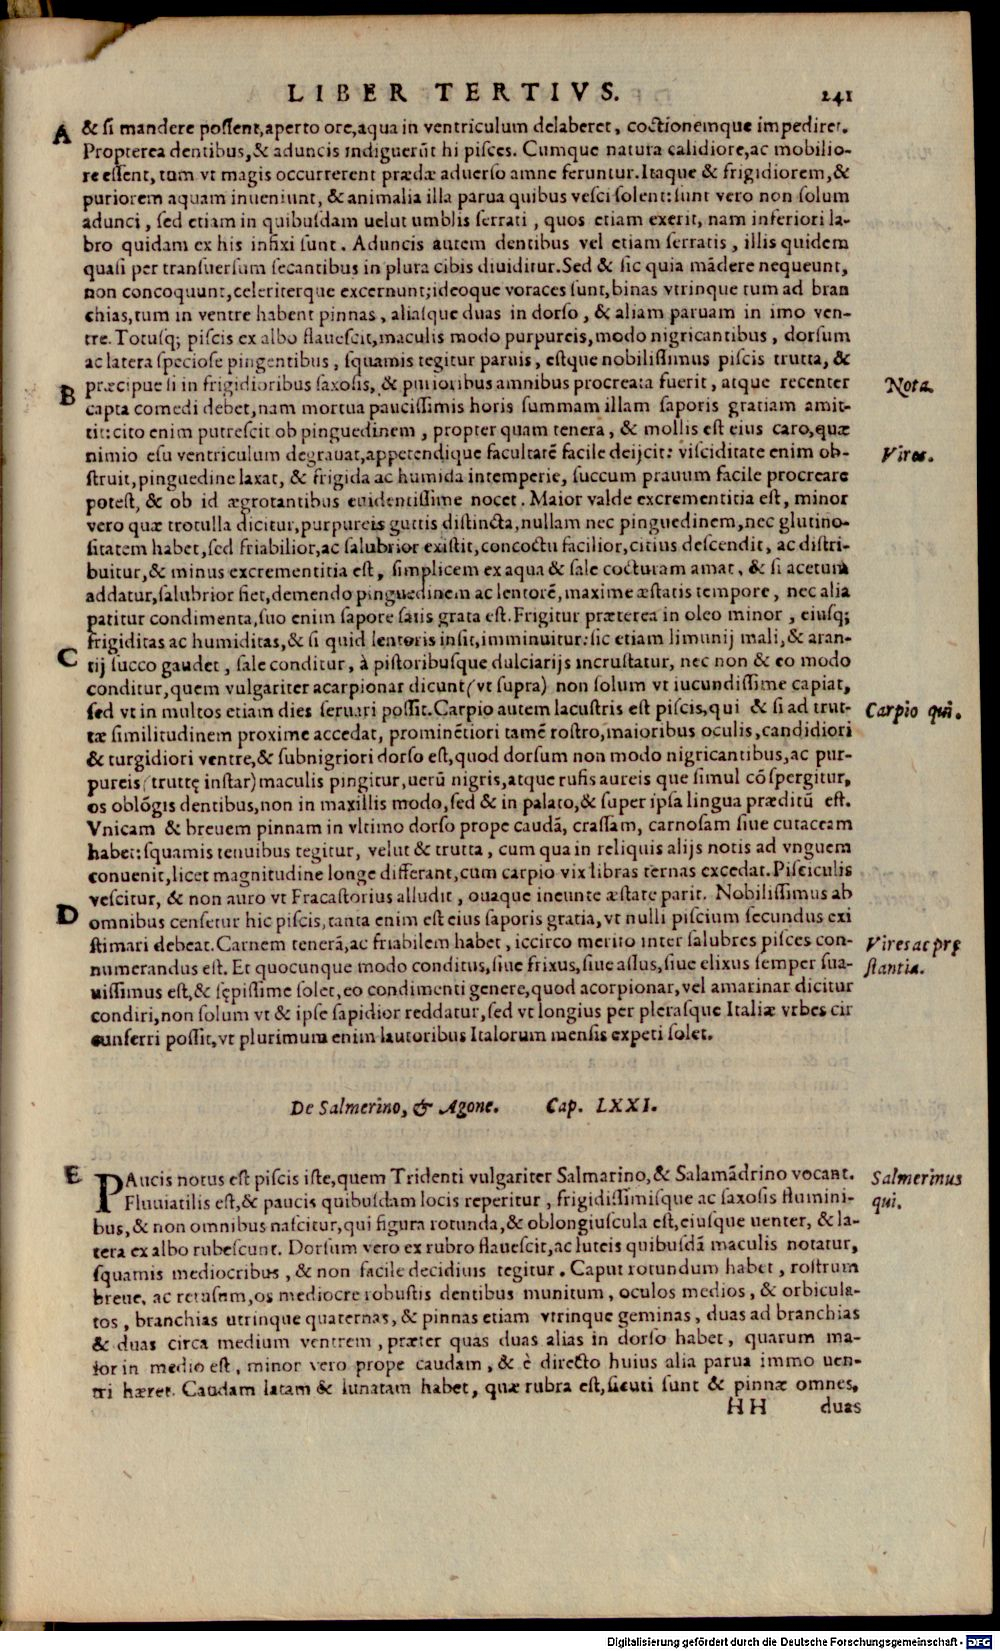 LIBER TERTIVS. 241
A & si mandere possent, aperto ore, aqua in ventriculum delaberet, coctionemque impediret.
Propterea dentibus, & aduncis indiguerūt hi pisces. Cumque natura calidiore, ac mobilio-
re essent, tum vt magis occurrerent prædæ aduerso amne feruntur. Itaque & frigidiorem, &
puriorem aquam inueniunt, & animalia illa parua quibus vesci solent: sunt vero non solum
adunci, sed etiam in quibusdam uelut umblis serrati, quos etiam exerit, nam inferiori la-
bro quidam ex his infixi sunt. Aduncis autem dentibus vel etiam serratis, illis quidem
quasi per transuersum secantibus in plura cibis diuiditur. Sed & sic quia mādere nequeunt,
non concoquunt, celeriterque excernunt; ideoque voraces sunt, binas vtrinque tum ad bran
chias, tum in ventre habent pinnas, aliasque duas in dorso, & aliam paruam in imo ven-
tre. Totusq; piscis ex albo flauescit, maculis modo purpureis, modo nigricantibus, dorsum
ac latera speciose pingentibus, squamis tegitur paruis, estque nobilissimus piscis trutta, &
B præcipue si in frigidioribus saxosis, & purioribus amnibus procreata fuerit, atque recenter Nota.
capta comedi debet, nam mortua paucissimis horis summam illam saporis gratiam amit-
tit: cito enim putrescit ob pinguedinem, propter quam tenera, & mollis est eius caro, quæ
nimio esu ventriculum degrauat, appetendique facultatē facile deijcit: visciditate enim ob- Vires.
struit, pinguedine laxat, & frigida ac humida intemperie, succum prauum facile procreare
potest, & ob id ægrotantibus euidentissime nocet. Maior valde excrementitia est, minor
vero quæ trotulla dicitur, purpureis guttis distincta, nullam nec pinguedinem, nec glutino-
sitatem habet, sed friabilior, ac salubrior existit, concoctu facilior, citius descendit, ac distri-
buitur, & minus excrementitia est, simplicem ex aqua & sale cocturam amat, & si acetum
addatur, salubrior fiet, demendo pinguedinem ac lentorē, maxime æstatis tempore, nec alia
patitur condimenta, suo enim sapore satis grata est. Frigitur præterea in oleo minor, eiusq;
frigiditas ac humiditas, & si quid lentoris insit, imminuitur: sic etiam limunij mali, & aran-
C tij succo gaudet, sale conditur, à pistoribusque dulciarijs incrustatur, nec non & eo modo
conditur, quem vulgariter acarpionar dicunt (vt supra) non solum vt iucundissime capiat,
sed vt in multos etiam dies seruari possit. Carpio autem lacustris est piscis, qui & si ad trut- Carpio qui.
tæ similitudinem proxime accedat, prominētiori tamē rostro, maioribus oculis, candidiori
& turgidiori ventre, & subnigriori dorso est, quod dorsum non modo nigricantibus, ac pur-
pureis (truttę instar) maculis pingitur, uerū nigris, atque rufis aureis que simul cō spergitur,
os oblōgis dentibus, non in maxillis modo, sed & in palato, & super ipsa lingua præditū est.
Vnicam & breuem pinnam in vltimo dorso prope caudā, crassam, carnosam siue cutaceam
habet: squamis tenuibus tegitur, velut & trutta, cum qua in reliquis alijs notis ad vnguem
conuenit, licet magnitudine longe differant, cum carpio vix libras ternas excedat. Pisciculis
vescitur, & non auro vt Fracastorius alludit, ouaque ineunte æstate parit. Nobilissimus ab
D omnibus censetur hic piscis, tanta enim est eius saporis gratia, vt nulli piscium secundus exi
stimari debeat. Carnem tenerā, ac friabilem habet, iccirco merito inter salubres pisces con- Vires ac prę
numerandus est. Et quocunque modo conditus, siue frixus, siue assus, siue elixus semper sua- stantia.
uissimus est, & sępissime solet, eo condimenti genere, quod acorpionar, vel amarinar dicitur
condiri, non solum vt & ipse sapidior reddatur, sed vt longius per plerasque Italiæ vrbes cir
cunferri possit, vt plurimum enim lautoribus Italorum mensis expeti solet.
De Salmerino, & Agone. Cap. LXXI.
E PAucis notus est piscis iste, quem Tridenti vulgariter Salmarino, & Salamādrino vocant. Salmerinus
Fluuiatilis est, & paucis quibusdam locis reperitur, frigidissimisque ac saxosis flumini- qui.
bus, & non omnibus nascitur, qui figura rotunda, & oblongiuscula est, eiusque uenter, & la-
tera ex albo rubescunt. Dorsum vero ex rubro flauescit, ac luteis quibusdā maculis notatur,
squamis mediocribus, & non facile deciduis tegitur. Caput rotundum habet, rostrum
breue, ac retusum, os mediocre robustis dentibus munitum, oculos medios, & orbicula-
tos, branchias utrinque quaternas, & pinnas etiam vtrinque geminas, duas ad branchias
& duas circa medium ventrem, præter quas duas alias in dorso habet, quarum ma-
ior in medio est, minor vero prope caudam, & è directo huius alia parua immo uen-
tri hæret. Caudam latam & lunatam habet, quæ rubra est, sicuti sunt & pinnæ omnes,
HH duas
Digitalisierung gefördert durch die Deutsche Forschungsgemeinschaft - DFG